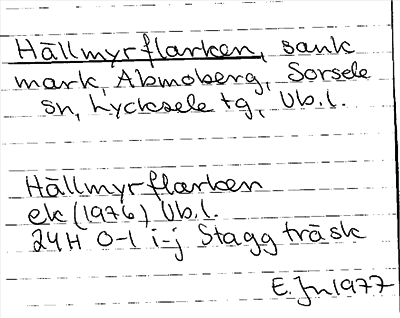 Hällmyrflarken, sank
mark, Abmoberg, Sorsele
sn, Lycksele tg, Vb.l.
Hällmyrflarken
ek (1976) Vb.l.
24H 0-1 i-j Staggträsk
E. Jn 1977